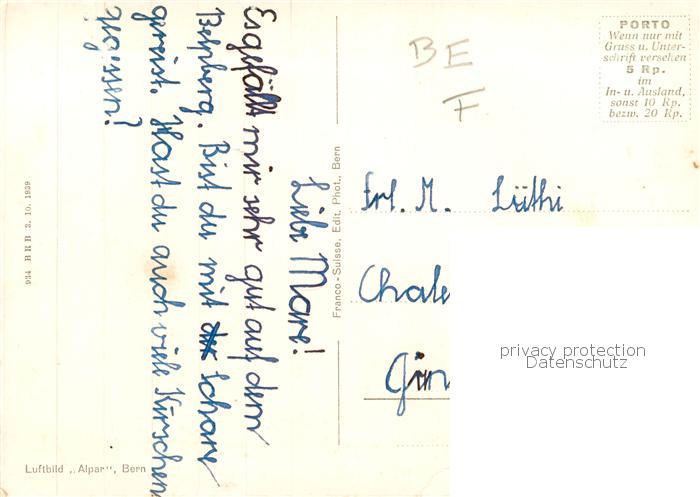 PORTO
Wenn nur mit
Gruss u. Unter-
schrift versehen
5 Rp.
im
In- u. Ausland,
sonst 10 Rp.
bezw. 20 Rp.
BE
F
Liebe Mare!
Es gefällt mir sehr gut auf dem
Belpberg. Bist du mit Schare
gereist. Hast du auch viele Kirschen
gegessen?
Franco-Suisse, Edit. Phot., Bern
Frl. M. Lüthi
Chale
privacy protection
Datenschutz
934 BRB 3. 10. 1939
Luftbild „Alpar", Bern